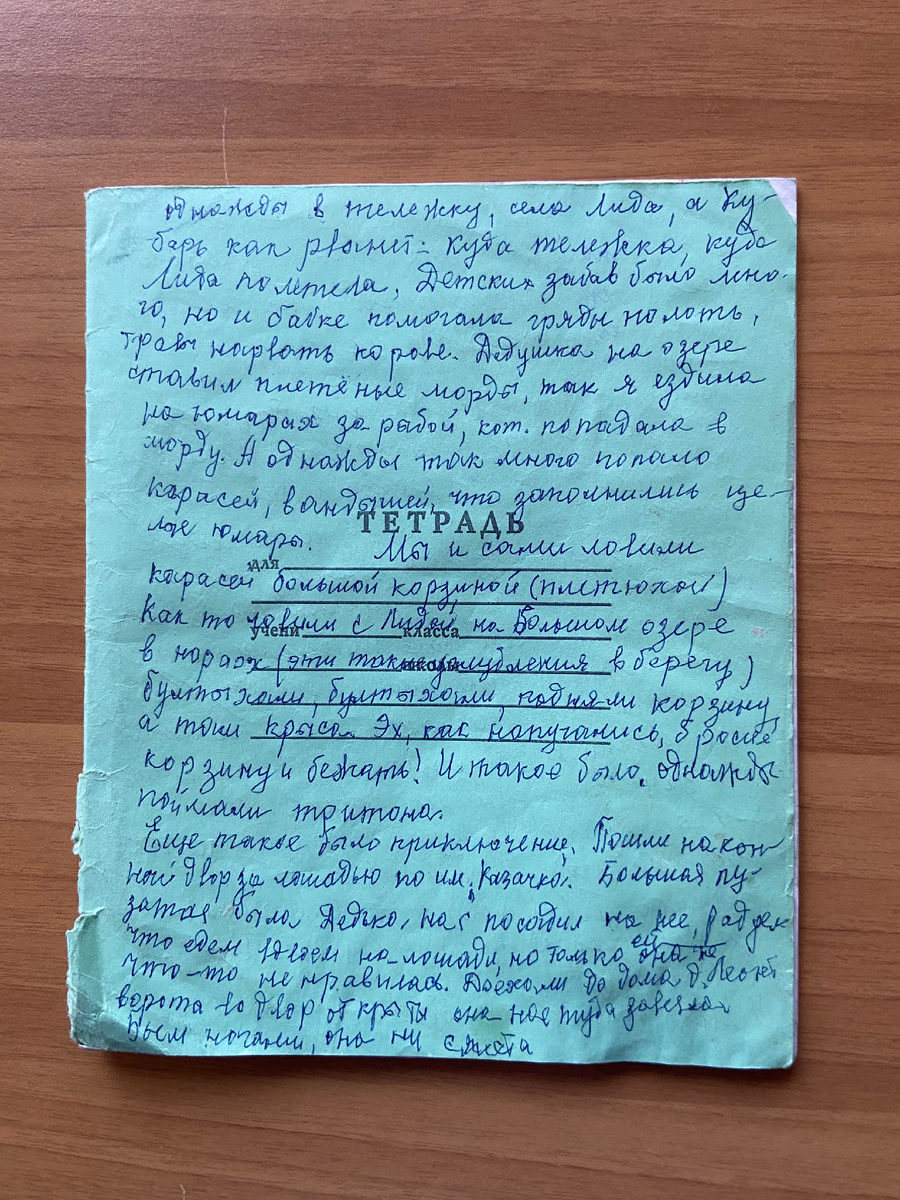 однажды в тележку, села Лида, а Ку-
барь как рванет: куда тележка, куда
Лида полетела. Детских забав было мно-
го, но и бабке помогала гряды полоть,
травы нарвать корове. Дедушка на озере
ставил плетёные морды, так я ездила
на юмарах за рыбой, кот. попадала в
морду. А однажды так много попало
карасей, вандышей, что заполнились це-
лые юмары.
ТЕТРАДЬ
Мы и сами ловили
для
карасей большой корзиной (плетюхой)
Как то ловили с Лидой на Большом озере
учени класса
в норах (эти такие углубления в берегу)
школы
булtыхали, булtыхали, подняли корзину,
а там крыса. Эх, как напугались, бросили
корзину и бежать! И такое было, однажды
поймали тритона.
Еще такое было приключение. Пошли на кон-
ный двор за лошадью по им. Казачка. Большая пу-
затая была Дедко нас посадил на нее, рад
что едем на лошади, но только ей она не
что-то не нравилась. Доехали до дома д.
ворота во двор открыты она нас туда завезла
Бьем ногами, она ни с места